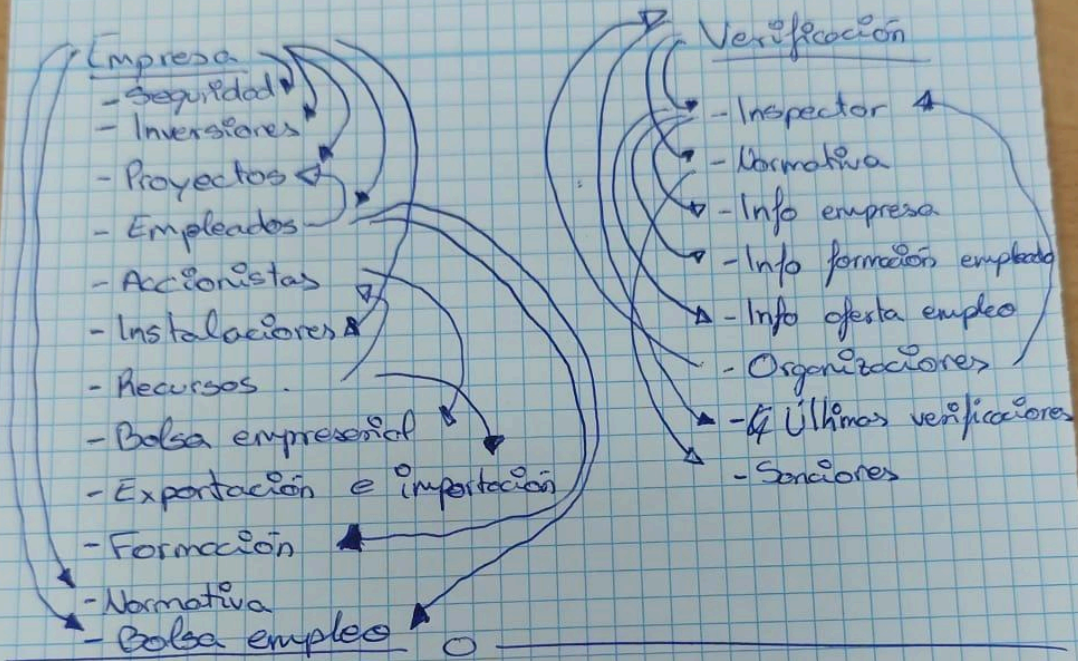 Empresa
- Seguridad
- Inversiones
- Proyectos
- Empleados
- Accionistas
- Instalaciones
- Recursos
- Bolsa empresarial
- Exportación e importación
- Formación
- Normativa
- Bolsa empleo
Verificación
- Inspector
- Normativa
- Info empresa
- Info formación empleado
- Info oferta empleo
- Organizaciones
- 4 Últimas verificaciones
- Sanciones